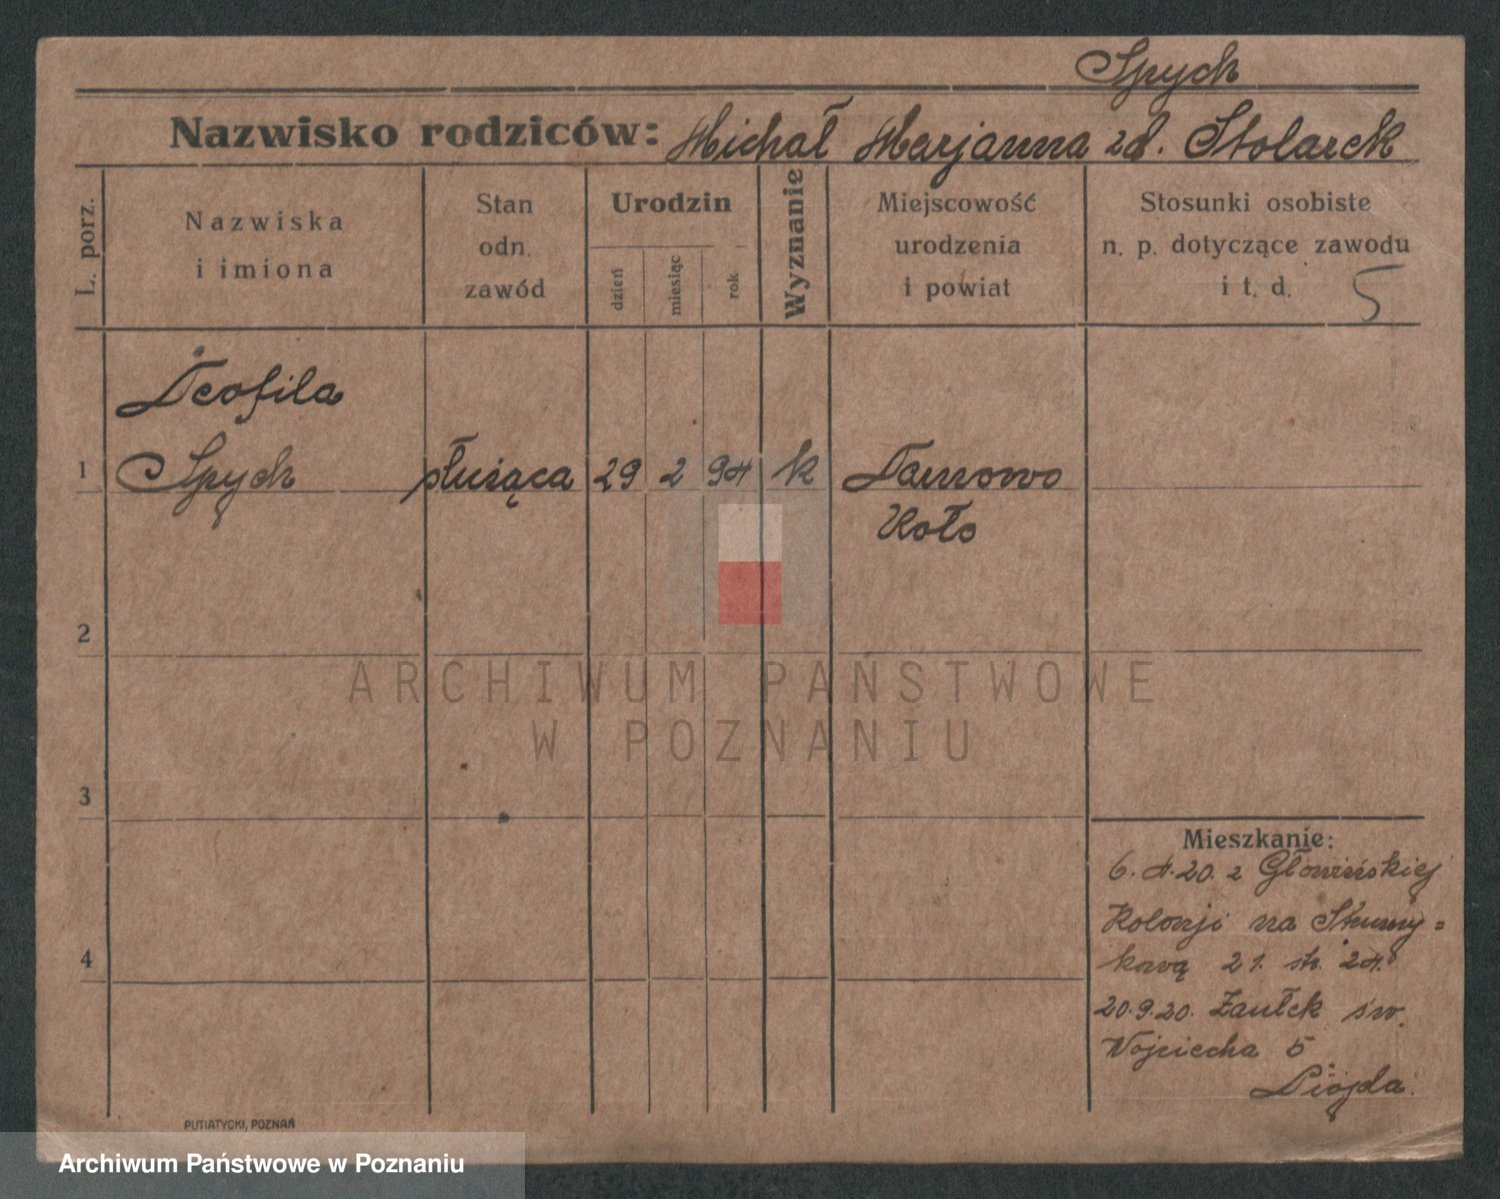 Spych
Nazwisko rodziców: Michał Marjanna zd. Stolarek
L. porz.
Nazwiska
i imiona
Stan
odn.
zawód
Urodzin
dzień
miesiąc
rok
Wyznanie
Miejscowość
urodzenia
i powiat
Stosunki osobiste
n. p. dotyczące zawodu
i t. d. 5
Teofila
1 Spych służąca 29 2 94 k Tarnowo
Koło
2
3
4
Mieszkanie:
6.4.20. z Głowińskiej
Kolonji na
21. 24.
20.9.20. Zaułek św.
Wojciecha 5
PUTIATYCKI, POZNAŃ
ARCHIWUM PAŃSTWOWE
W POZNANIU
Archiwum Państwowe w Poznaniu